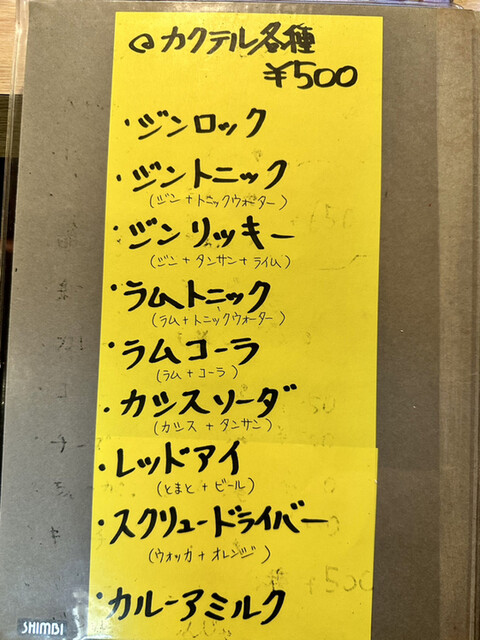 カクテル各種
¥500
・ジンロック
・ジントニック
(ジン+トニックウォーター)
・ジンリッキー
(ジン+タンサン+ライム)
・ラムトニック
(ラム+トニックウォーター)
・ラムコーラ
(ラム+コーラ)
・カシスソーダ
(カシス+タンサン)
・レッドアイ
(とまと+ビール)
・スクリュードライバー
(ウォッカ+オレンジ)
・カルーアミルク
SHIMBI